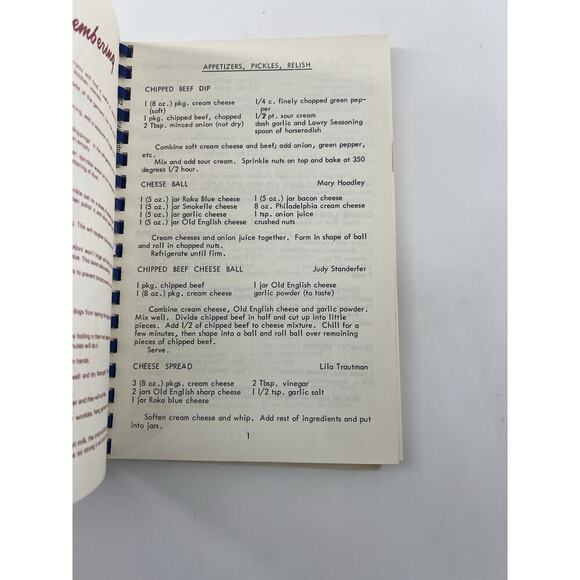 embering
APPETIZERS, PICKLES, RELISH
CHIPPED BEEF DIP
1 (8 oz.) pkg. cream cheese (soft)
1 pkg. chipped beef, chopped
2 Tbsp. minced onion (not dry)
1/4 c. finely chopped green pep-
per
1/2 pt. sour cream
dash garlic and Lawry Seasoning
spoon of horseradish
Combine soft cream cheese and beef; add onion, green pepper,
etc.
Mix and add sour cream. Sprinkle nuts on top and bake at 350
degrees 1/2 hour.
CHEESE BALL Mary Hoadley
1 (5 oz.) jar Roka Blue cheese
1 (5 oz.) jar Smokelle cheese
1 (5 oz.) jar garlic cheese
1 (5 oz.) jar Old English cheese
1 (5 oz.) jar bacon cheese
8 oz. Philadelphia cream cheese
1 tsp. onion juice
crushed nuts
Cream cheeses and onion juice together. Form in shape of ball
and roll in chopped nuts.
Refrigerate until firm.
CHIPPED BEEF CHEESE BALL Judy Standerfer
1 pkg. chipped beef
1 (8 oz.) pkg. cream cheese
1 jar Old English cheese
garlic powder (to taste)
Combine cream cheese, Old English cheese and garlic powder.
Mix well. Divide chipped beef in half and cut up into little
pieces. Add 1/2 of chipped beef to cheese mixture. Chill for
a few minutes, then shape into a ball and roll ball over remaining
pieces of chipped beef.
Serve.
CHEESE SPREAD Lila Trautman
3 (8 oz.) pkgs. cream cheese
2 jars Old English sharp cheese
1 jar Roka blue cheese
2 Tbsp. vinegar
1 1/2 tsp. garlic salt
Soften cream cheese and whip. Add rest of ingredients and put
into jars.
1